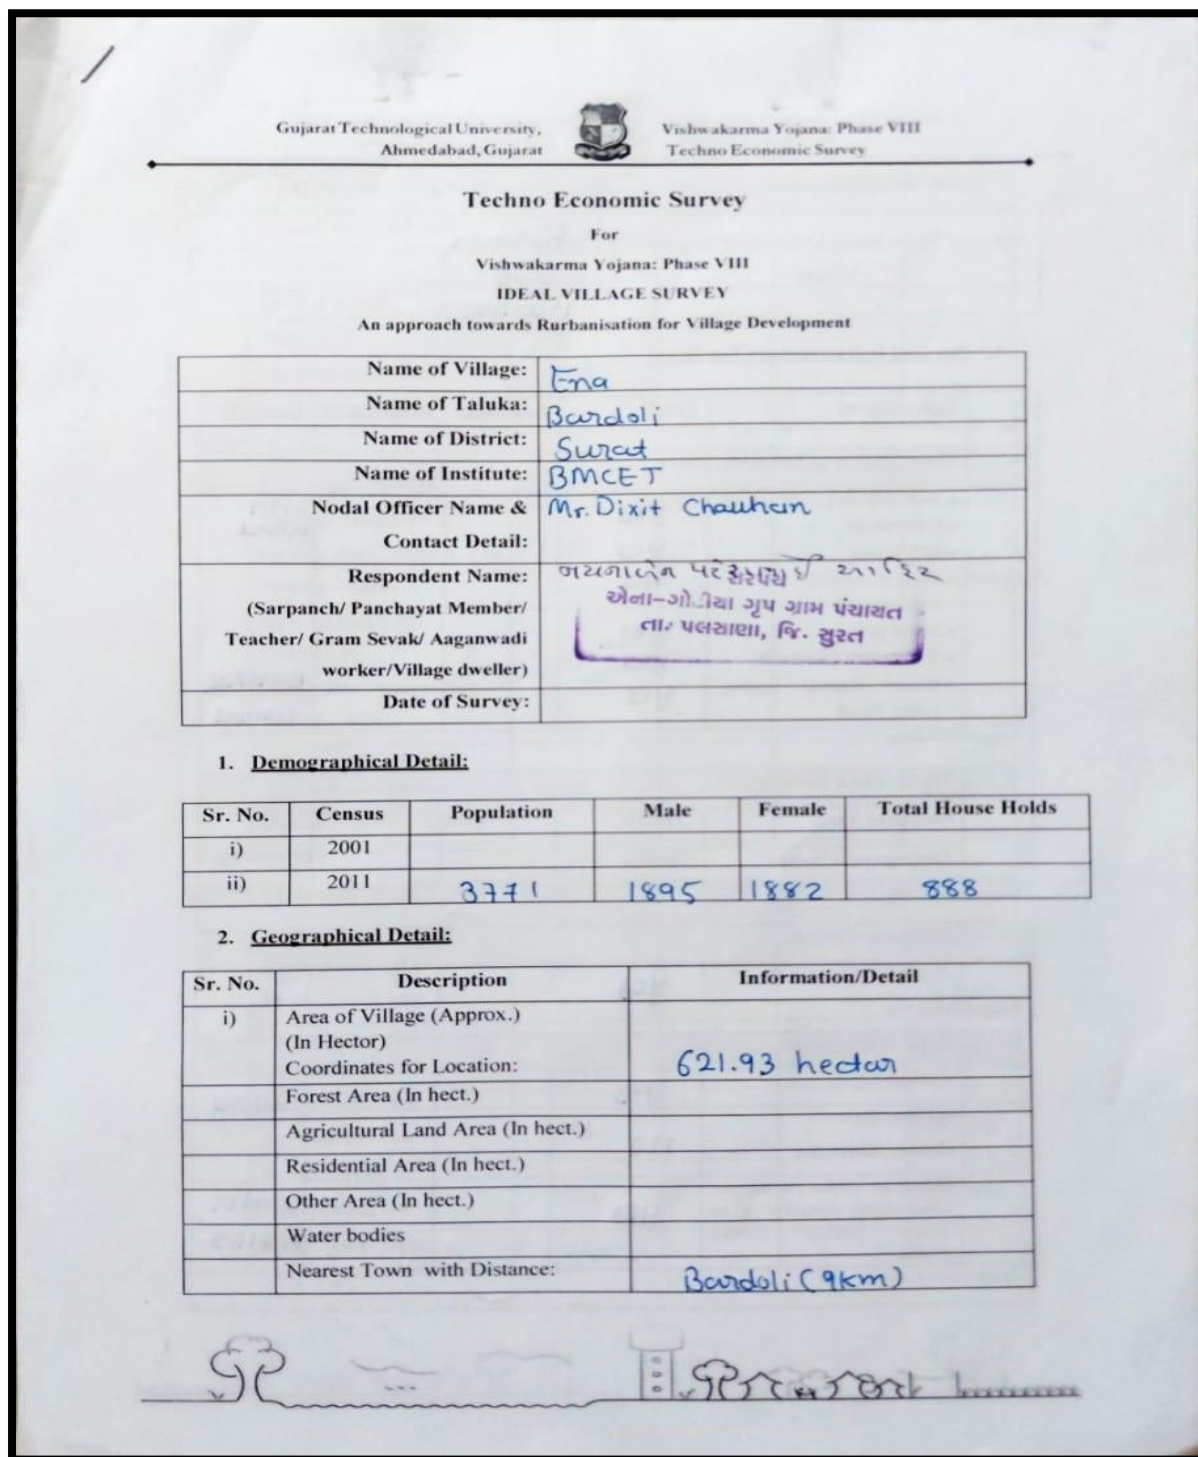 Gujarat Technological University,
Ahmedabad, Gujarat
Vishwakarma Yojana: Phase VIII
Techno Economic Survey
Techno Economic Survey
For
Vishwakarma Yojana: Phase VIII
IDEAL VILLAGE SURVEY
An approach towards Rurbanisation for Village Development
Name of Village: Ena
Name of Taluka: Bardoli
Name of District: Surat
Name of Institute: BMCET
Nodal Officer Name & Mr. Dixit Chauhan
Contact Detail:
Respondent Name:
(Sarpanch/ Panchayat Member/
Teacher/ Gram Sevak/ Aaganwadi
worker/Village dweller)
સરપંચ
એના-ગોડીયા ગૃપ ગ્રામ પંચાયત
તા. પલસાણા, જિ. સુરત
Date of Survey:
1. Demographical Detail:
Sr. No. Census Population Male Female Total House Holds
i) 2001
ii) 2011 3771 1895 1882 888
2. Geographical Detail:
Sr. No. Description Information/Detail
i) Area of Village (Approx.)
(In Hector)
Coordinates for Location: 621.93 hectar
Forest Area (In hect.)
Agricultural Land Area (In hect.)
Residential Area (In hect.)
Other Area (In hect.)
Water bodies
Nearest Town with Distance: Bardoli (9km)